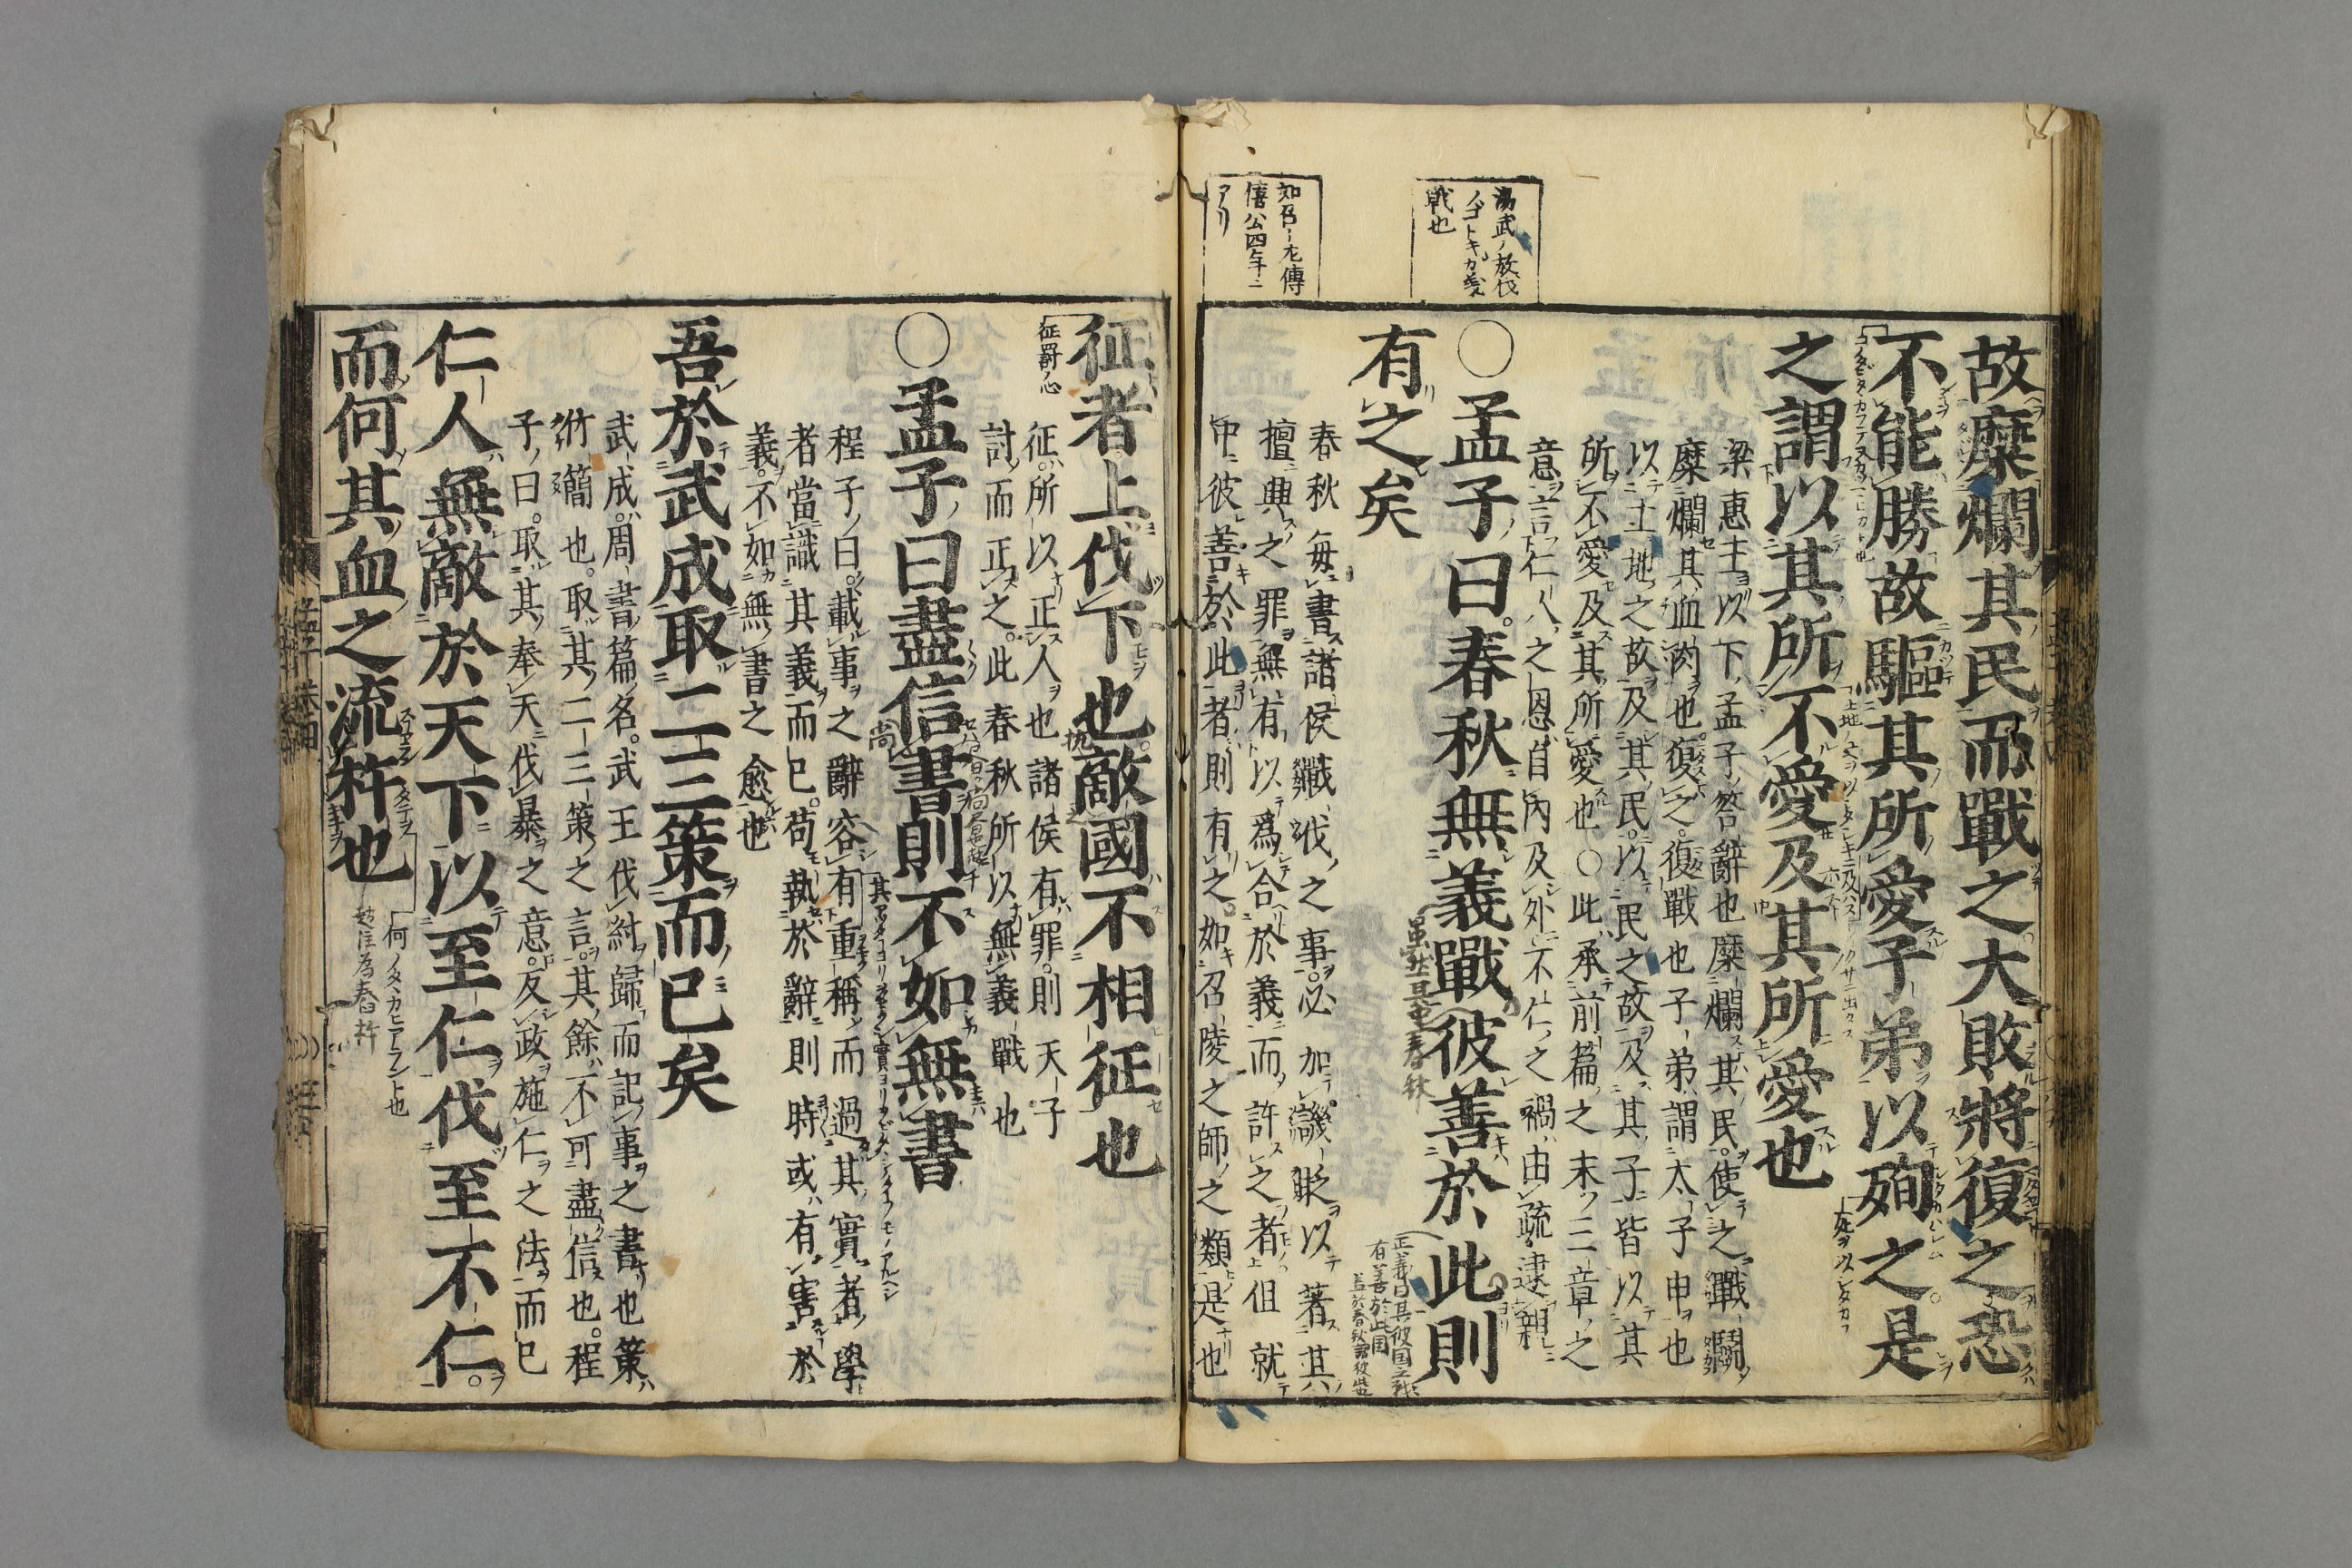 湯武ノ放伐
ノゴトキカ義
戦也
故糜爛其民而戰之大敗將復之恐
不能勝故驅其所愛子弟以殉之是
之謂以其所不愛及其所愛也
梁惠王以下孟子答辭也糜爛其民使之戰鬭
糜爛其血肉也復之復戰也子弟謂太子申也
以土地之故及其民以民之故及其子皆以其
所不愛及其所愛也○此承前篇之末三章之
意言仁人之恩自內及外不仁之禍由疏逮親
○孟子曰春秋無義戰彼善於此則
有之矣
春秋每書諸侯戰伐之事必加譏貶以著其
擅興之罪無有以爲合於義而許之者但就
中彼善於此者則有之如召陵之師之類是也
如召ー左傳
僖公四年ニ
アリ
征者上伐下也敵國不相征也
征罰心
征所以正人也諸侯有罪則天子
討而正之此春秋所以無義戰也
○孟子曰盡信書則不如無書
程子曰載事之辭容有重稱而過其實者學
者當識其義而已苟執於辭則時或有害於
義不如無書之愈也
吾於武成取二三策而已矣
武成周書篇名武王伐紂歸而記事之書也策
竹簡也取其二三策之言其餘不可盡信也程
子曰取其奉天伐暴之意反政施仁之法而已
仁人無敵於天下以至仁伐至不仁
而何其血之流杵也